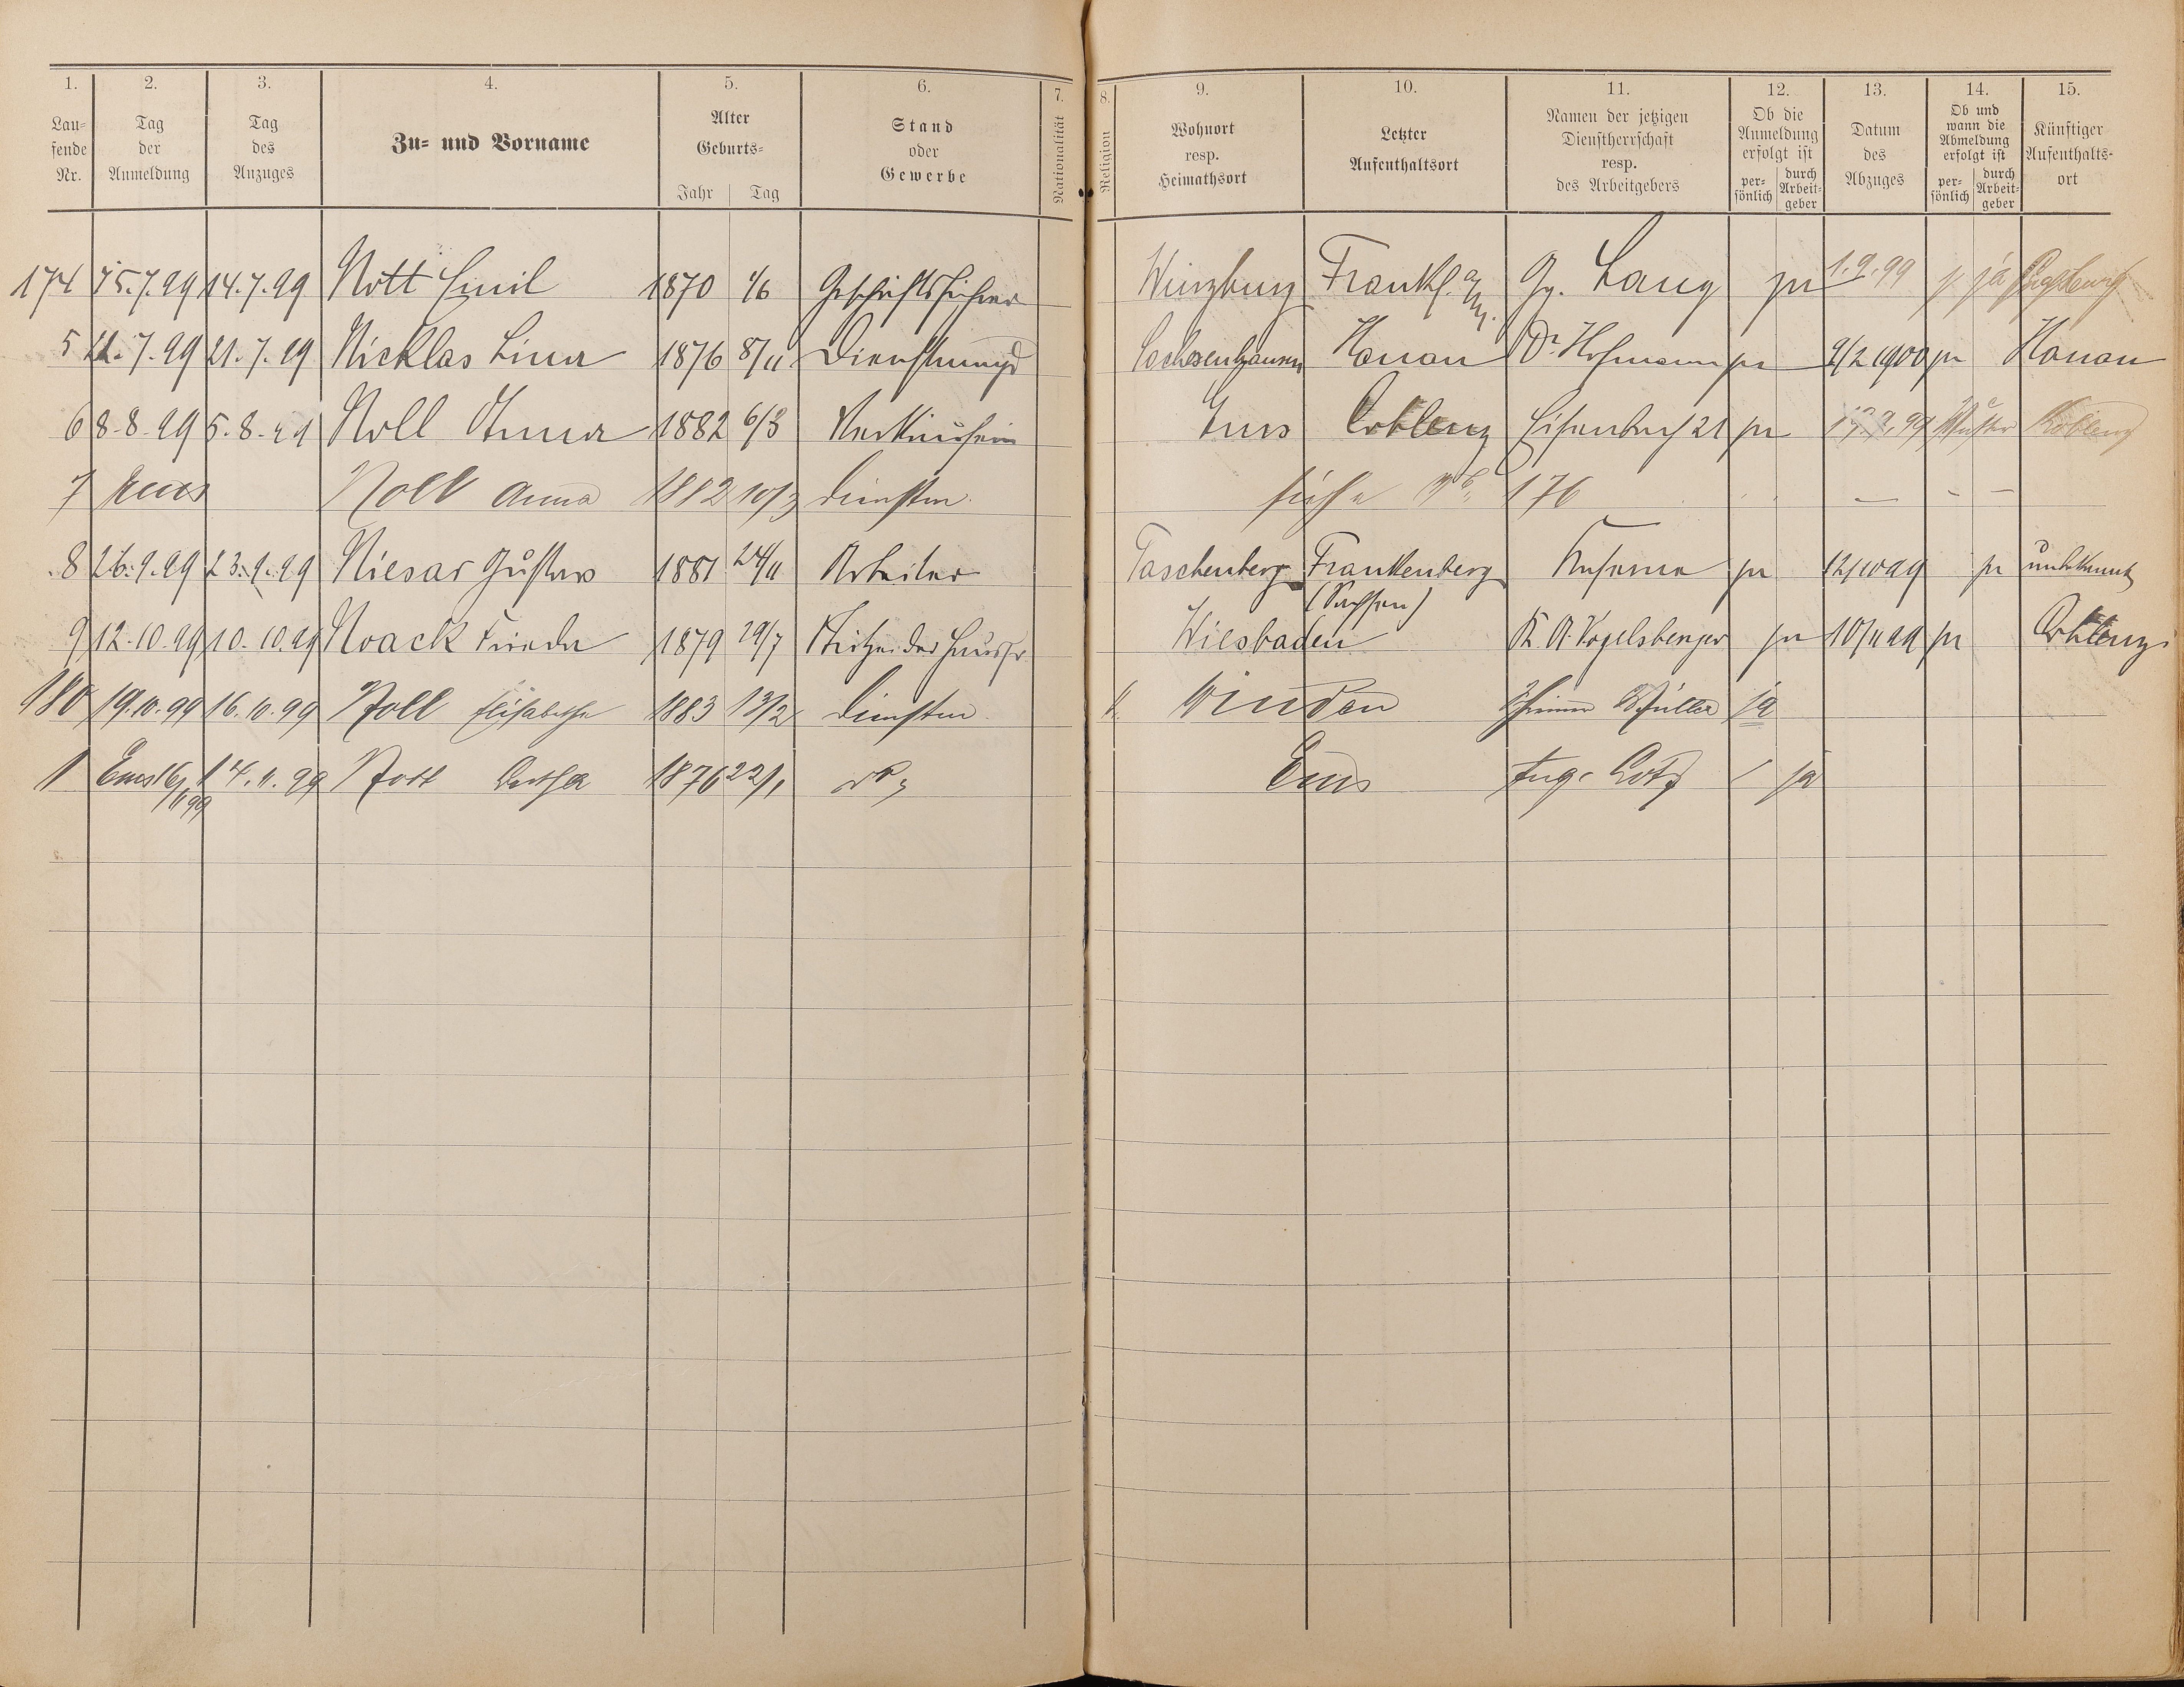 1. 2. 3. 4. 5. 6. 7. 8. 9. 10. 11. 12. 13. 14. 15.
Laufende Nr.
Tag der Anmeldung
Tag des Anzuges
Zu- und Vorname
Alter Geburts- Jahr Tag
Stand oder Gewerbe
Nationalität
Religion
Wohnort resp. Heimathsort
Letzter Aufenthaltsort
Namen der jetzigen Dienstherrschaft resp. des Arbeitgebers
Ob die Anmeldung erfolgt ist persönlich durch Arbeitgeber
Datum des Abzuges
Ob und wann die Abmeldung erfolgt ist persönlich durch Arbeitgeber
Künftiger Aufenthaltsort
174 15.7.99 14.7.99 Nott Emil 1870 1/6 Geschäftsführer Würzburg Frankf. a/M. Gg. Lang ja 1.9.99 ja
5 21.7.99 21.7.99 Nicklas Lina 1876 8/11 Dienstmagd Sachsenhausen Hanau Dr. Hofmann ja 9/2 1900 ja Hanau
6 8.8.99 5.8.99 Noll Anna 1882 6/3 Verkäuferin Ems Coblenz Eisenbach 21 ja Mutter Koblenz
7 Ems Noll Anna 1882 10/3 Dienstm. siehe No. 176 — — —
8 26.9.99 23.9.99 Niesar Gustav 1881 24/11 Arbeiter Taschenberg Frankenberg (Sachsen) ja 12/10 99 ja unbekannt
9 12.10.99 10.10.99 Noack Frieda 1879 29/7 Stütze der Hausfr. Wiesbaden K. A. Vogelsberger ja 10/11 99 ja Coblenz
180 19.10.99 16.10.99 Noll Elisabetha 1883 13/2 Dienstm. Winden Müller ja
1 Ems 16/11 99 14.11.99 Nott Bertha 1876 22/1 do. Ems Aug. Lotz ja